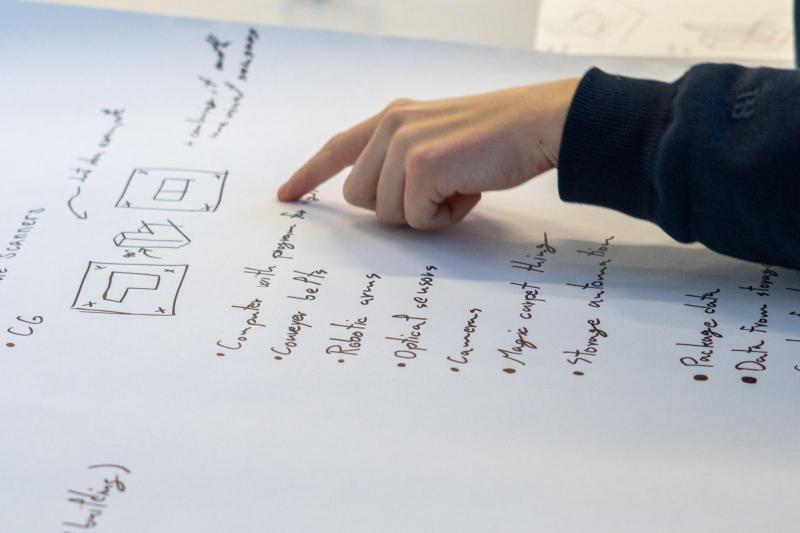 Scanners
• CG
• Computer with program to
• Conveyer belts
• Robotic arms
• Optical sensors
• Cameras
• Magic carpet thing
• Storage automation
• Package data
• Data from storage
building)
90°